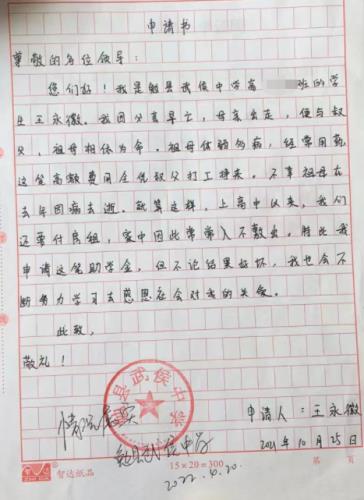 申请书
尊敬的各位领导：
您们好！我是勉县武侯中学高 班的学
生王永徽。我因父亲早亡，母亲出走，便与叔
父、祖母相依为命。祖母体弱多病，经常用药，
这笔高额费用全凭叔父打工得来。不幸祖母在
去年因病去逝。就算这样，上高中以来，我们
还要付房租，家中因此常常入不敷出。特此我
申请这笔助学金，但不论结果好坏，我也会不
断努力学习去感恩社会对我的关爱。
此致，
敬礼！
勉县武侯中学
情况属实
申请人：王永徽
勉县武侯中学
2021年10月25日
智达纸品
15×20=300
第 页
2022.6.20.